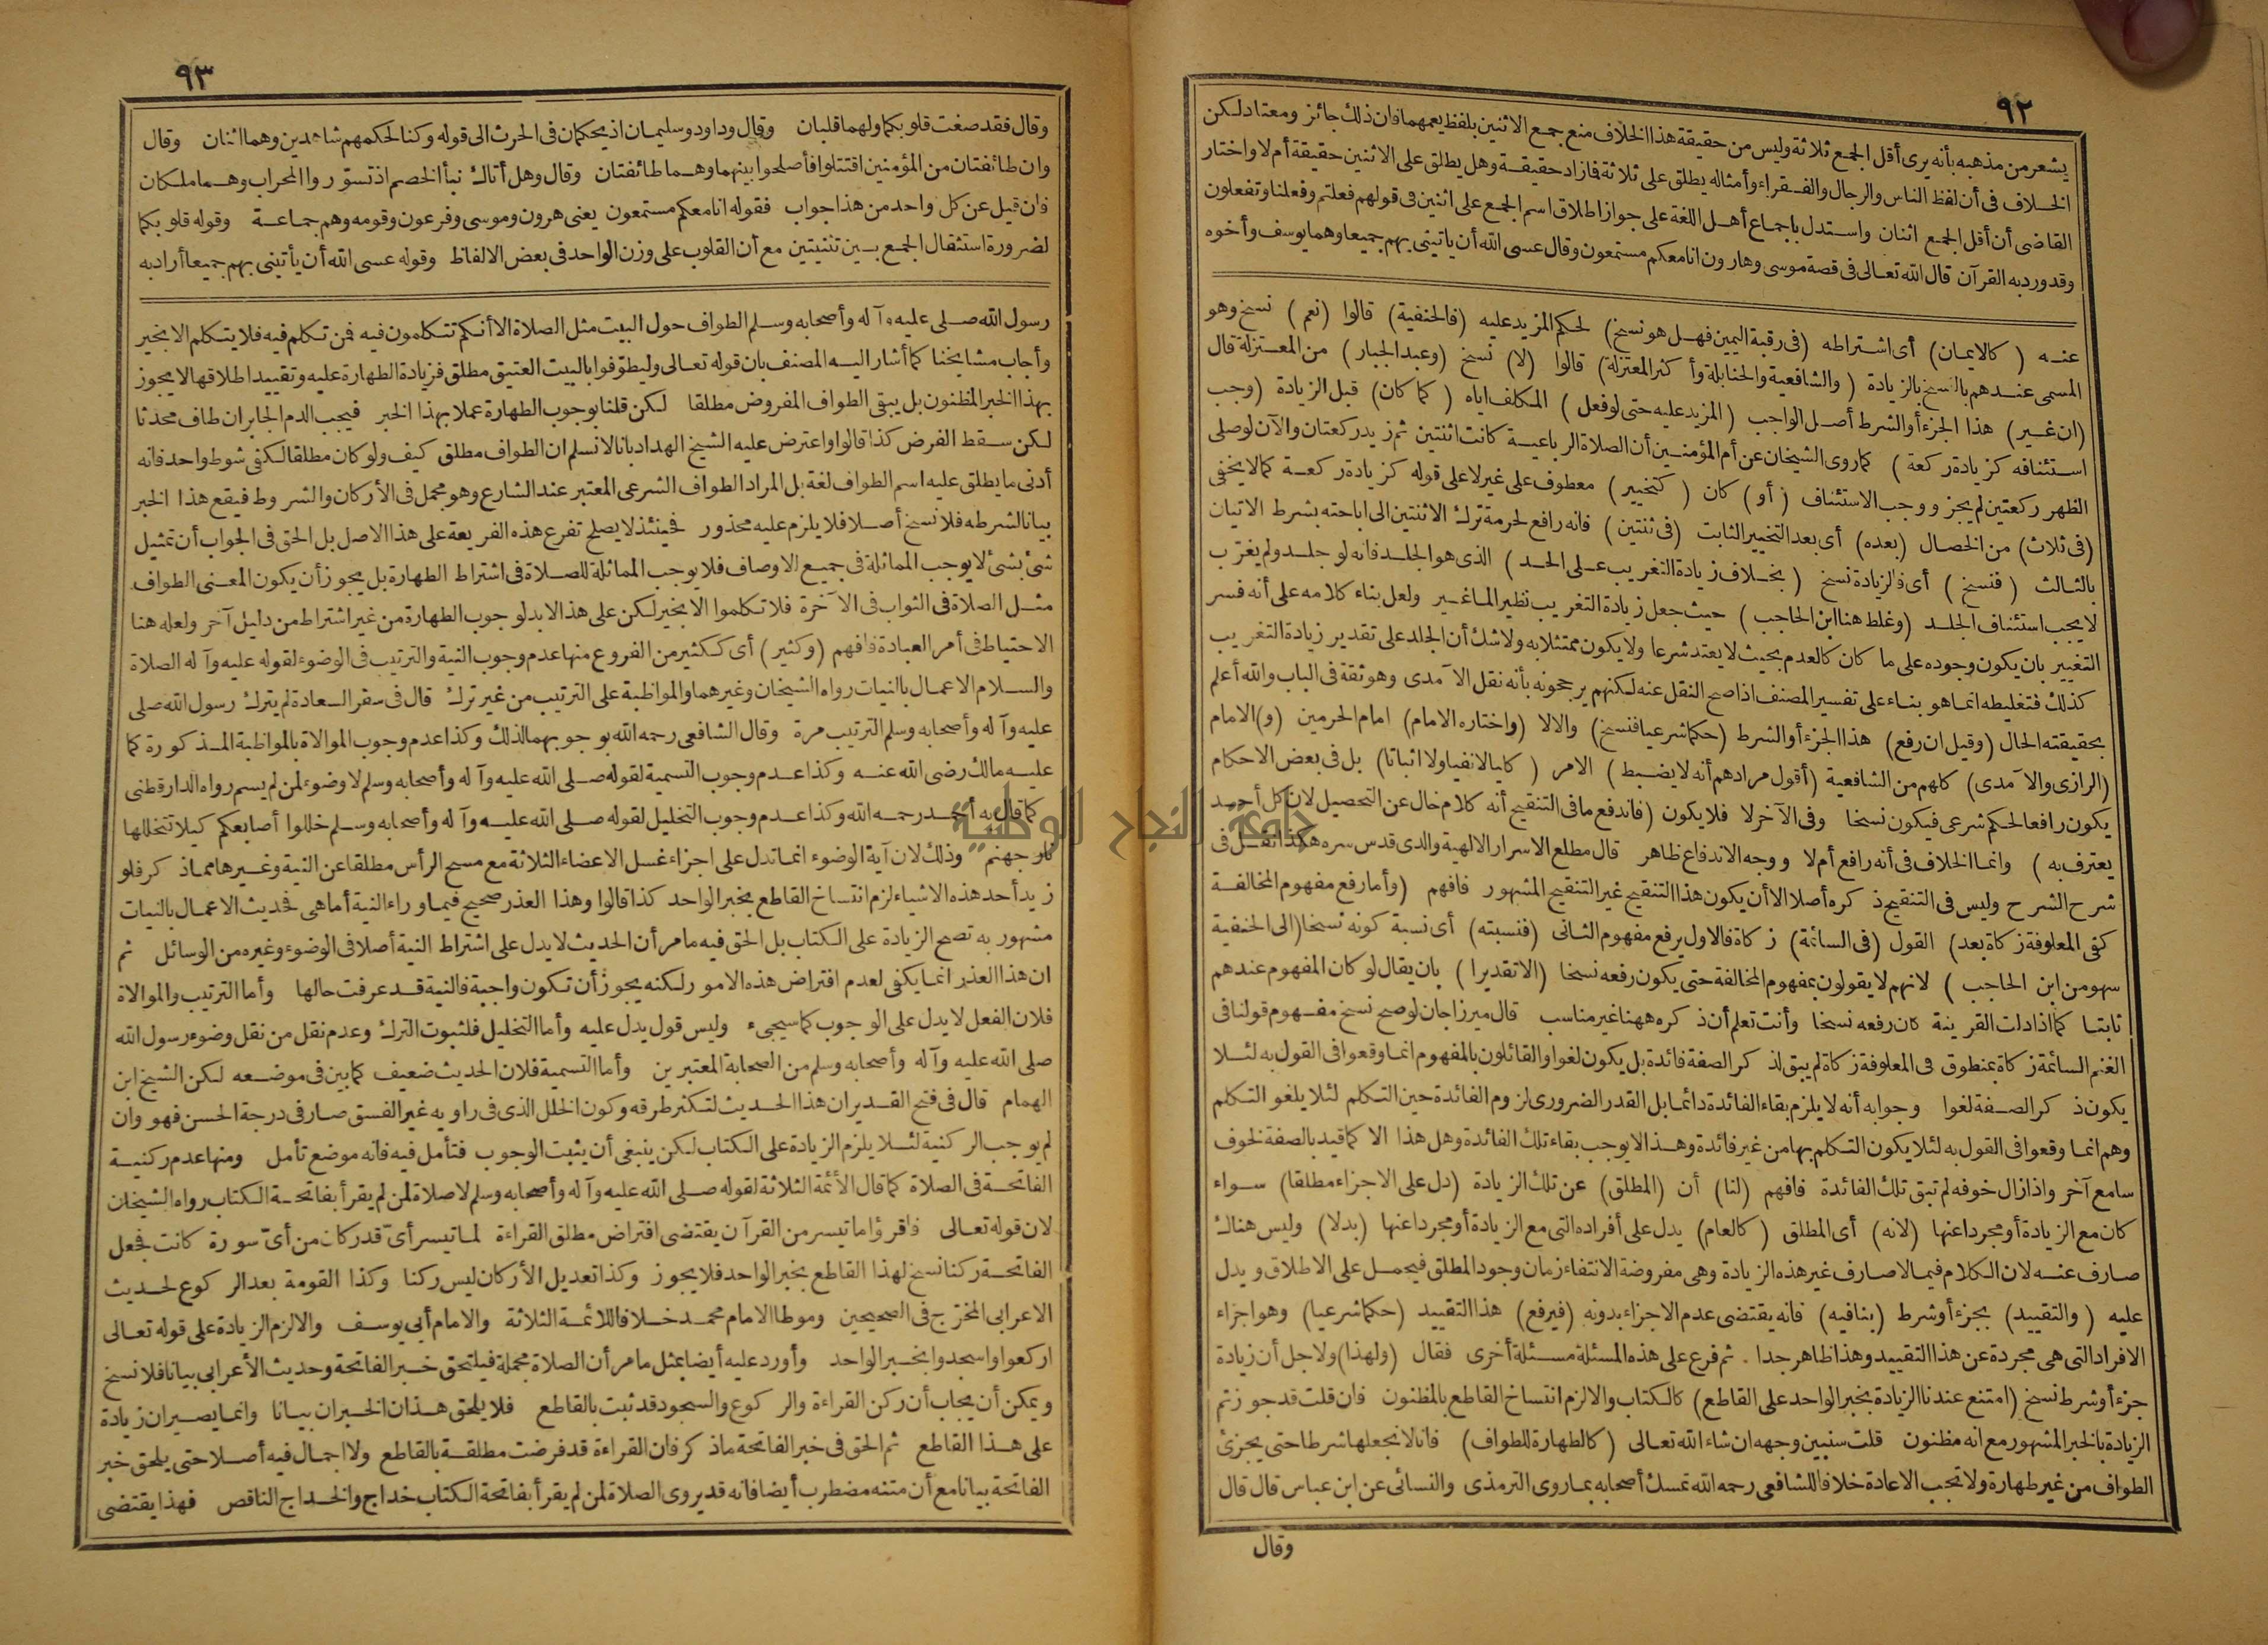 ٩٢
يشعر من مذهبه بأنه يرى أقل الجمع ثلاثة وليس من حقيقة هذا الخلاف منع جمع الاثنين بلفظ يعمهما فان ذلك جائز ومعتاد لكن
الخلاف فى أن لفظ الناس والرجال والفقراء وأمثاله يطلق على ثلاثة فازاد حقيقة وهل يطلق على الاثنين حقيقة أم لا واختار
القاضى أن أقل الجمع اثنان واستدل باجماع أهل اللغة على جواز اطلاق اسم الجمع على اثنين فى قولهم فعلتم وفعلنا وتفعلون
وقد ورد به القرآن قال الله تعالى فى قصة موسى وهارون انا معكم مستمعون وقال عسى الله أن يأتينى بهم جميعا وهما يوسف وأخوه
عنه (كالايمان) أى اشتراطه (فى رقبة اليمين فهل هو نسخ) لحكم المزيد عليه (فالحنفية) قالوا (نعم) نسخ وهو
المسمى عندهم بالنسخ بالزيادة (والشافعية والحنابلة وأكثر المعتزلة) قالوا (لا) نسخ (وعبد الجبار) من المعتزلة قال
(ان غير) هذا الجزء أو الشرط أصل الواجب (المزيد عليه حتى لو فعل) المكلف اياه (كما كان) قبل الزيادة (وجب
استئنافه كزيادة ركعة) كما روى الشيخان عن أم المؤمنين أن الصلاة الرباعية كانت اثنتين ثم زيد ركعتان والآن لو صلى
الظهر ركعتين لم يجز ووجب الاستئناف (أو) كان (كتخيير) معطوف على غير لا على قوله كزيادة ركعة كما لا يخفى
(فى ثلاث) من الخصال (بعده) أى بعد التخيير الثابت (فى ثنتين) فانه رافع لحرمة ترك الاثنتين الى اباحته بشرط الاتيان
بالثالث (فنسخ) أى فالزيادة نسخ (بخلاف زيادة التغريب على الحد) الذى هو الجلد فانه لو جلد ولم يغرب
لا يجب استئناف الجلد (وغلط هنا ابن الحاجب) حيث جعل زيادة التغريب نظير الما غير ولعل بناء كلامه على أنه فسر
التغيير بان يكون وجوده على ما كان كالعدم بحيث لا يعتد شرعا ولا يكون ممتثلا به ولا شك أن الجلد على تقدير زيادة التغريب
كذلك فتغليطه انما هو بناء على تفسير المصنف اذا صح النقل عنه لكنهم يرجحونه بأنه نقل الآمدى وهو ثقة فى الباب والله أعلم
بحقيقته الحال (وقيل ان رفع) هذا الجزء أو الشرط (حكما شرعيا فنسخ) والا لا (واختاره الامام) امام الحرمين (و) الامام
(الرازى والآمدى) كلهم من الشافعية (أقول مرادهم أنه لا يضبط) الامر (كليا لا نفيا ولا اثباتا) بل فى بعض الاحكام
يكون رافعا لحكم شرعى فيكون نسخا وفى الآخر لا فلا يكون (فاندفع ما فى التنقيح أنه كلام خال عن التحصيل لان كل أحد
يعترف به) وانما الخلاف فى أنه رافع أم لا ووجه الاندفاع ظاهر قال مطلع الاسرار الالهية والدى قدس سره هكذا نقل فى
شرح الشرح وليس فى التنقيح ذكره أصلا الا أن يكون هذا التنقيح غير التنقيح المشهور فافهم (وأما رفع مفهوم المخالفة
كفى المعلوفة زكاة بعد) القول (فى السائمة) زكاة فالاول يرفع مفهوم الثانى (فنسبته) أى نسبة كونه نسخا (الى الحنفية
سهو من ابن الحاجب) لانهم لا يقولون بمفهوم المخالفة حتى يكون رفعه نسخا (الا تقديرا) بان يقال لو كان المفهوم عندهم
ثابتا كما اذا دلت القرينة كان رفعه نسخا وأنت تعلم أن ذكره ههنا غير مناسب قال ميرزاجان لو صح نسخ مفهوم قولنا فى
الغنم السائمة زكاة بمنطوق فى المعلوفة زكاة لم يبق لذكر الصفة فائدة بل يكون لغوا والقائلون بالمفهوم انما وقعوا فى القول به لئلا
يكون ذكر الصفة لغوا وجوابه أنه لا يلزم بقاء الفائدة دائما بل القدر الضرورى لزوم الفائدة حين التكلم لئلا يلغو التكلم
وهم انما وقعوا فى القول به لئلا يكون التكلم بها من غير فائدة وهذا لا يوجب بقاء تلك الفائدة وهل هذا الا كما قيد بالصفة لخوف
سامع آخر واذا زال خوفه لم تبق تلك الفائدة فافهم (لنا) أن (المطلق) عن تلك الزيادة (دل على الاجزاء مطلقا) سواء
كان مع الزيادة أو مجردا عنها (لانه) أى المطلق (كالعام) يدل على أفراده التى مع الزيادة أو مجردا عنها (بدلا) وليس هناك
صارف عنه لان الكلام فيما لا صارف غير هذه الزيادة وهى مفروضة الانتفاء زمان وجود المطلق فيحمل على الاطلاق ويدل
عليه (والتقييد) بجزء أو شرط (ينافيه) فانه يقتضى عدم الاجزاء بدونه (فيرفع) هذا التقييد (حكما شرعيا) وهو اجزاء
الافراد التى هى مجردة عن هذا التقييد وهذا ظاهر جدا . ثم فرع على هذه المسئلة مسئلة أخرى فقال (ولهذا) ولاجل أن زيادة
جزء أو شرط نسخ (امتنع عندنا الزيادة بخبر الواحد على القاطع) كالكتاب والا لزم انتساخ القاطع بالمظنون فان قلت قد جوزتم
الزيادة بالخبر المشهور مع انه مظنون قلت سنبين وجهه ان شاء الله تعالى (كالطهارة للطواف) فانا لا نجعلها شرطا حتى يجزئ
الطواف من غير طهارة ولا تجب الاعادة خلافا للشافعى رحمه الله تمسك أصحابه بما روى الترمذى والنسائى عن ابن عباس قال قال
وقال
٩٣
وقال فقد صغت قلوبكما ولهما قلبان وقال وداود وسليمان اذ يحكمان فى الحرث الى قوله وكنا لحكمهم شاهدين وهما اثنان وقال
وان طائفتان من المؤمنين اقتتلوا فأصلحوا بينهما وهما طائفتان وقال وهل أتاك نبأ الخصم اذ تسوروا المحراب وهما ملكان
فان قيل عن كل واحد من هذا جواب فقوله انا معكم مستمعون يعنى هرون وموسى وفرعون وقومه وهم جماعة وقوله قلوبكما
لضرورة استثقال الجمع بين تثنيتين مع أن القلوب على وزن الواحد فى بعض الالفاظ وقوله عسى الله أن يأتينى بهم جميعا أراد به
رسول الله صلى عليه وآله وأصحابه وسلم الطواف حول البيت مثل الصلاة الا أنكم تتكلمون فيه فمن تكلم فيه فلا يتكلم الا بخير
وأجاب مشايخنا كما أشار اليه المصنف بان قوله تعالى وليطوفوا بالبيت العتيق مطلق فزيادة الطهارة عليه وتقييد اطلاقها لا يجوز
بهذا الخبر المظنون بل يبقى الطواف المفروض مطلقا لكن قلنا بوجوب الطهارة عملا بهذا الخبر فيجب الدم الجابر ان طاف محدثا
لكن سقط الفرض كذا قالوا واعترض عليه الشيخ الهداد بانا لا نسلم ان الطواف مطلق كيف ولو كان مطلقا لكفى شوط واحد فانه
أدنى ما يطلق عليه اسم الطواف لغة بل المراد الطواف الشرعى المعتبر عند الشارع وهو مجمل فى الأركان والشروط فيقع هذا الخبر
بيانا لشرطه فلا نسخ أصلا فلا يلزم عليه محذور فحينئذ لا يصلح تفرع هذه الفريعة على هذا الاصل بل الحق فى الجواب أن تمثيل
شئ بشئ لا يوجب المماثلة فى جميع الاوصاف فلا يوجب المماثلة للصلاة فى اشتراط الطهارة بل يجوز أن يكون المعنى الطواف
مثل الصلاة فى الثواب فى الآخرة فلا تكلموا الا بخير لكن على هذا لا بد لوجوب الطهارة من غير اشتراط من دليل آخر ولعله هنا
الاحتياط فى أمر العبادة فافهم (وكثير) أى ككثير من الفروع منها عدم وجوب النية والترتيب فى الوضوء لقوله عليه وآله الصلاة
والسلام الاعمال بالنيات رواه الشيخان وغيرهما والمواظبة على الترتيب من غير ترك قال فى سفر السعادة لم يترك رسول الله صلى
عليه وآله وأصحابه وسلم الترتيب مرة وقال الشافعى رحمه الله بوجوبهما لذلك وكذا عدم وجوب الموالاة بالمواظبة المذكورة كما
عليه مالك رضى الله عنه وكذا عدم وجوب التسمية لقوله صلى الله عليه وآله وأصحابه وسلم لا وضوء لمن لم يسم رواه الدارقطنى
كما قال به أحمد رحمه الله وكذا عدم وجوب التخليل لقوله صلى الله عليه وآله وأصحابه وسلم خللوا أصابعكم كيلا تتخللها
نار جهنم وذلك لان آية الوضوء انما تدل على اجزاء غسل الاعضاء الثلاثة مع مسح الرأس مطلقا عن النية وغيرها مما ذكر فلو
زيد أحد هذه الاشياء لزم انتساخ القاطع بخبر الواحد كذا قالوا وهذا العذر صحيح فيما وراء النية أما هى فحديث الاعمال بالنيات
مشهور به تصح الزيادة على الكتاب بل الحق فيه ما مر أن الحديث لا يدل على اشتراط النية أصلا فى الوضوء وغيره من الوسائل ثم
ان هذا العذر انما يكفى لعدم افتراض هذه الامور لكنه يجوز أن تكون واجبة فالنية قد عرفت حالها وأما الترتيب والموالاة
فلان الفعل لا يدل على الوجوب كما سيجىء وليس قول يدل عليه وأما التخليل فلثبوت الترك وعدم نقل من نقل وضوء رسول الله
صلى الله عليه وآله وأصحابه وسلم من الصحابة المعتبرين وأما التسمية فلان الحديث ضعيف كما بين فى موضعه لكن الشيخ ابن
الهمام قال فى فتح القدير ان هذا الحديث لتكثر طرقه وكون الخلل الذى فى راويه غير الفسق صار فى درجة الحسن فهو وان
لم يوجب الركنية لئلا يلزم الزيادة على الكتاب لكن ينبغى أن يثبت الوجوب فتأمل فيه فانه موضع تأمل ومنها عدم ركنية
الفاتحة فى الصلاة كما قال الأئمة الثلاثة لقوله صلى الله عليه وآله وأصحابه وسلم لا صلاة لمن لم يقرأ بفاتحة الكتاب رواه الشيخان
لان قوله تعالى فاقرؤا ما تيسر من القرآن يقتضى افتراض مطلق القراءة لما تيسر أى قدر كان من أى سورة كانت فجعل
الفاتحة ركنا نسخ لهذا القاطع بخبر الواحد فلا يجوز وكذا تعديل الأركان ليس ركنا وكذا القومة بعد الركوع لحديث
الاعرابى المخرج فى الصحيحين وموطا الامام محمد خلافا للائمة الثلاثة والامام أبى يوسف والا لزم الزيادة على قوله تعالى
اركعوا واسجدوا بخبر الواحد وأورد عليه أيضا بمثل ما مر أن الصلاة مجملة فيلتحق خبر الفاتحة وحديث الأعرابى بيانا فلا نسخ
ويمكن أن يجاب أن ركن القراءة والركوع والسجود قد ثبت بالقاطع فلا يلحق هذان الخبران بيانا وانما يصيران زيادة
على هذا القاطع ثم الحق فى خبر الفاتحة ما ذكر فان القراءة قد فرضت مطلقة بالقاطع ولا اجمال فيه أصلا حتى يلحق خبر
الفاتحة بيانا مع أن متنه مضطرب أيضا فانه قد يروى الصلاة لمن لم يقرأ بفاتحة الكتاب خداج والخداج الناقص فهذا يقتضى
جامعة النجاح الوطنية